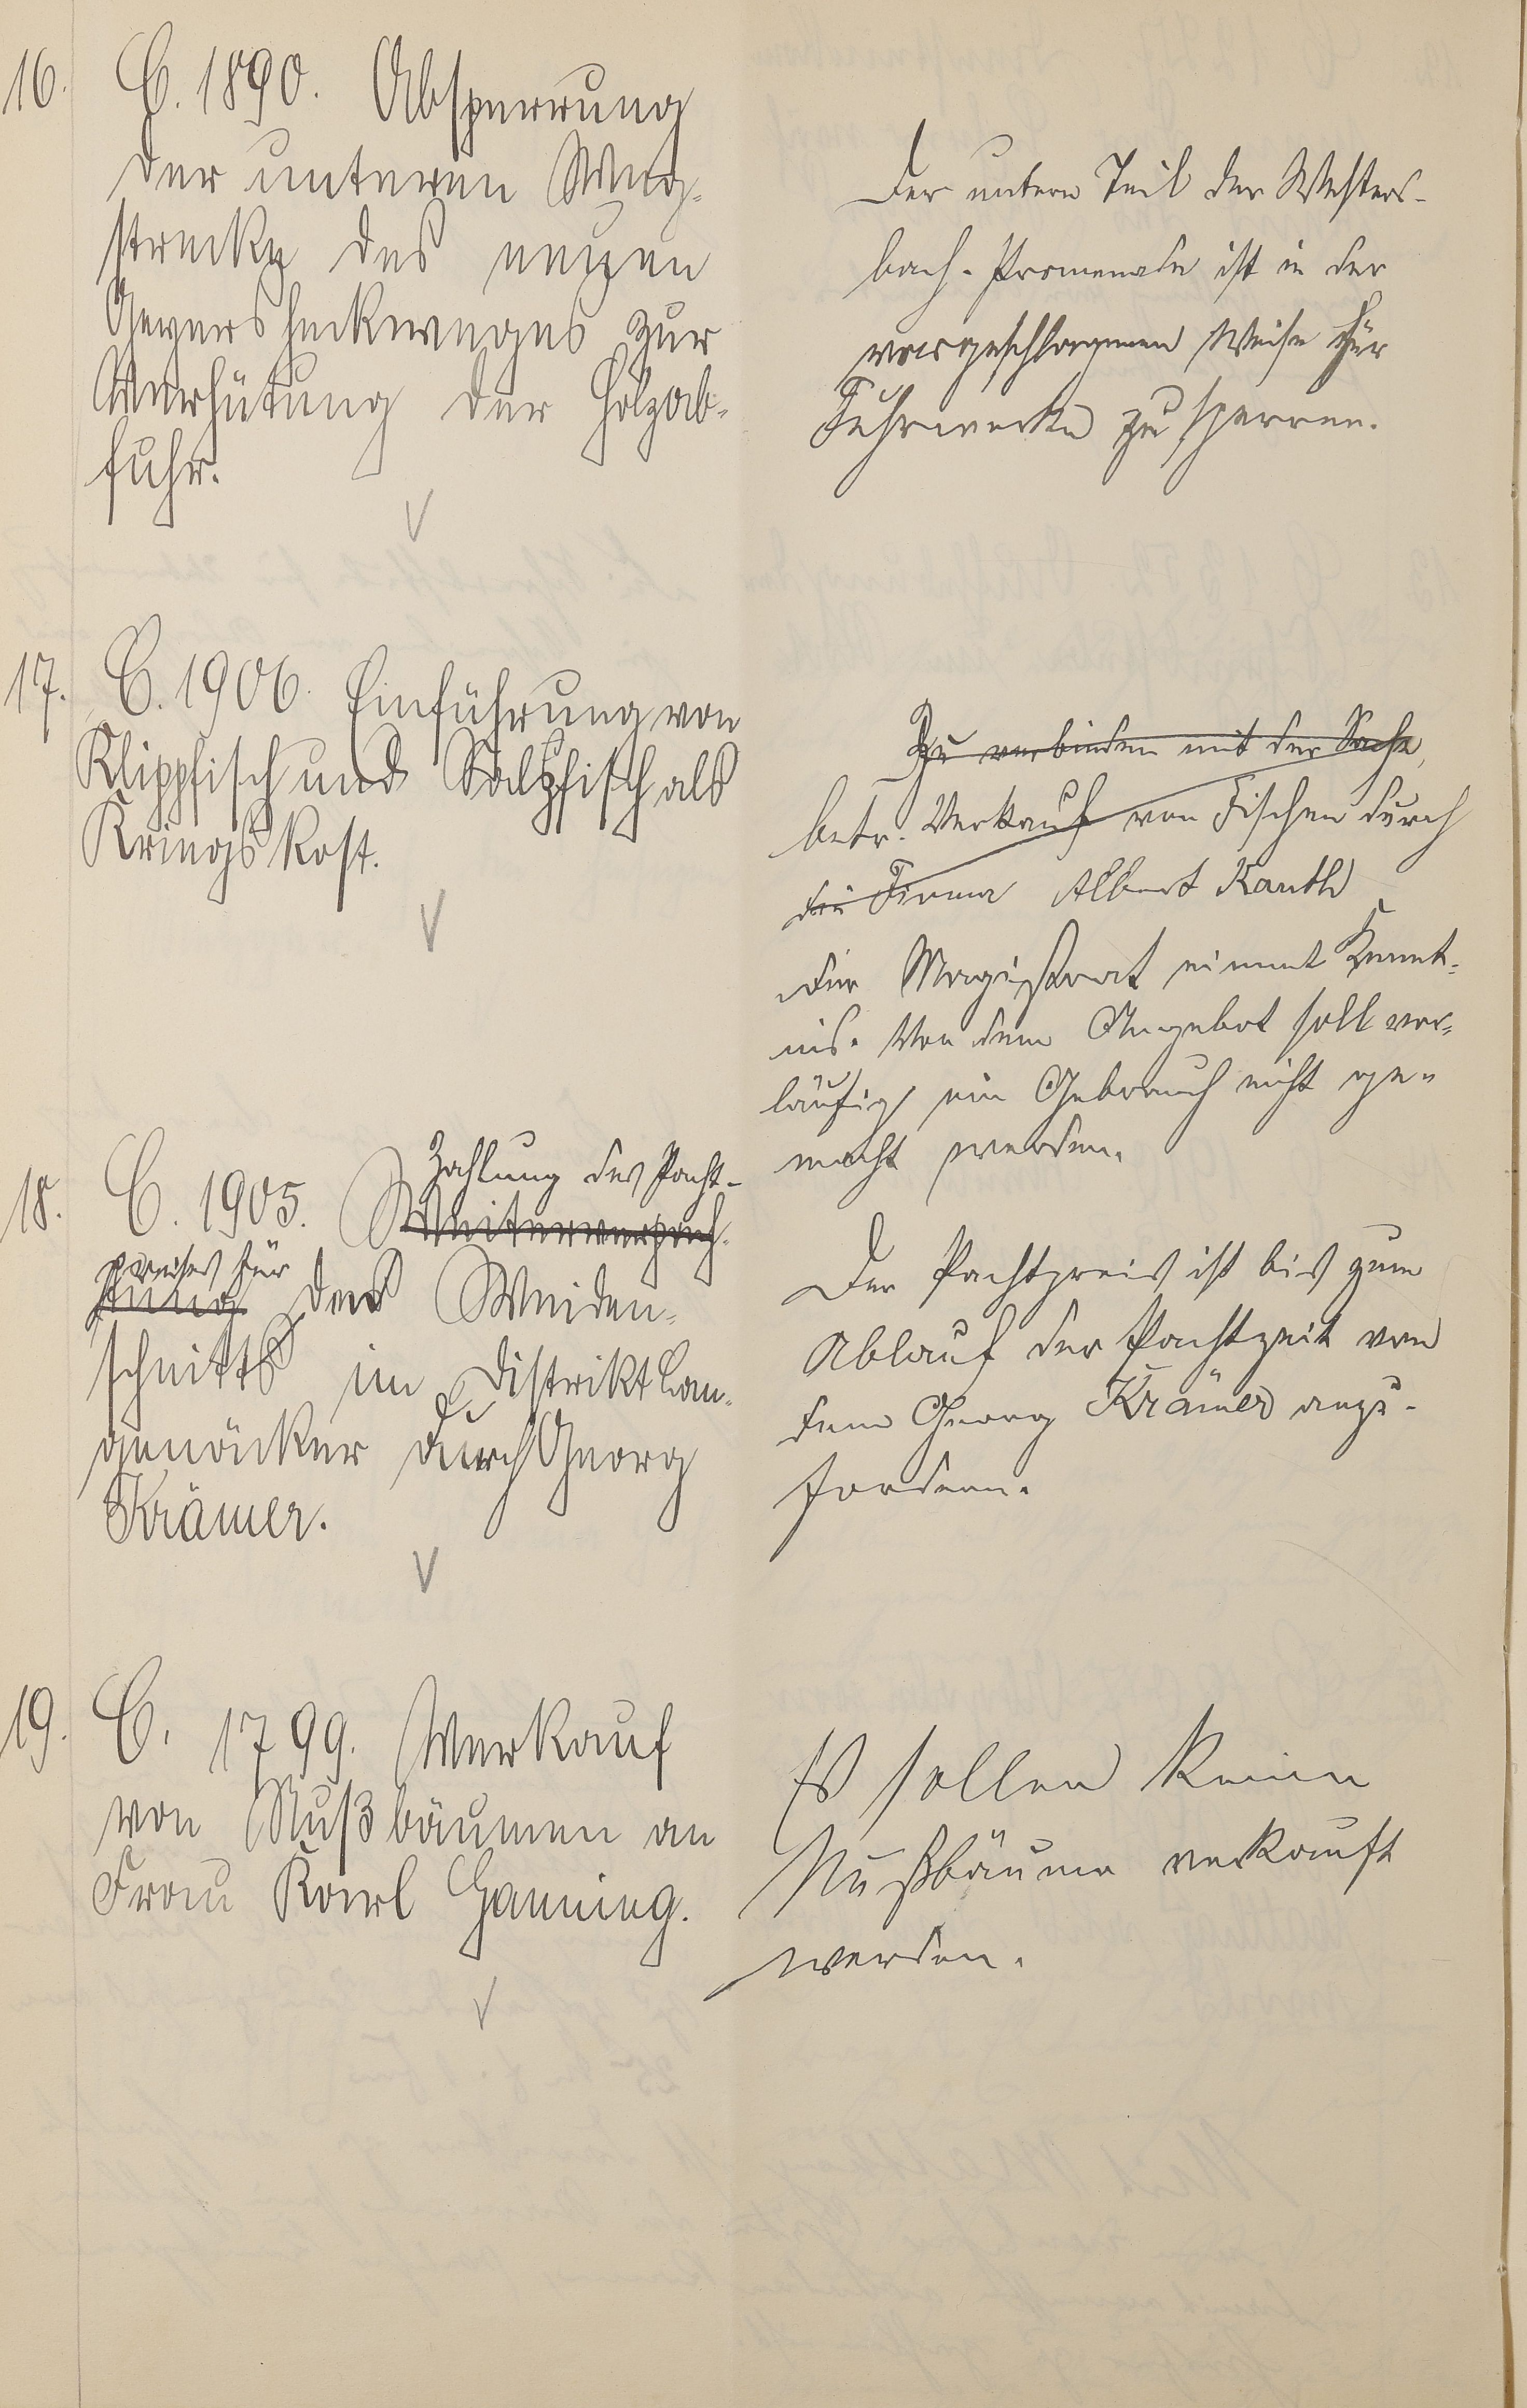 16. C. 1890. Absperrung
der unteren Weg-
strecke des neuen
Geyersheckweges zur
Verhütung der Holzab-
fuhr.
Der untere Teil der Westers-
bach-Promenade ist in der
vorgeschlagenen Weise für
Fuhrwerke zu sperren.
17. C. 1906. Einführung von
Klippfisch und Salzfisch als
Kriegskost.
Zu verbinden mit der Sache,
betr. Verkauf von Fischen durch
die Firma Albert Kauth
Der Magistrat nimmt Kennt-
nis. Von dem Angebot soll vor-
läufig ein Gebrauch nicht ge-
macht werden.
18. C. 1905. Weiterverpach-
Zahlung des Pacht-
preises für
tung des Weiden-
schnitts im Distrikt Lan-
genäcker durch Georg
Krämer.
Der Pachtpreis ist bis zum
Ablauf der Pachtzeit von
dem Georg Krämer anzu-
fordern.
19. C. 1799. Verkauf
von Nußbäumen an
Frau Karl Henning.
Es sollen keine
Nußbäume verkauft
werden.